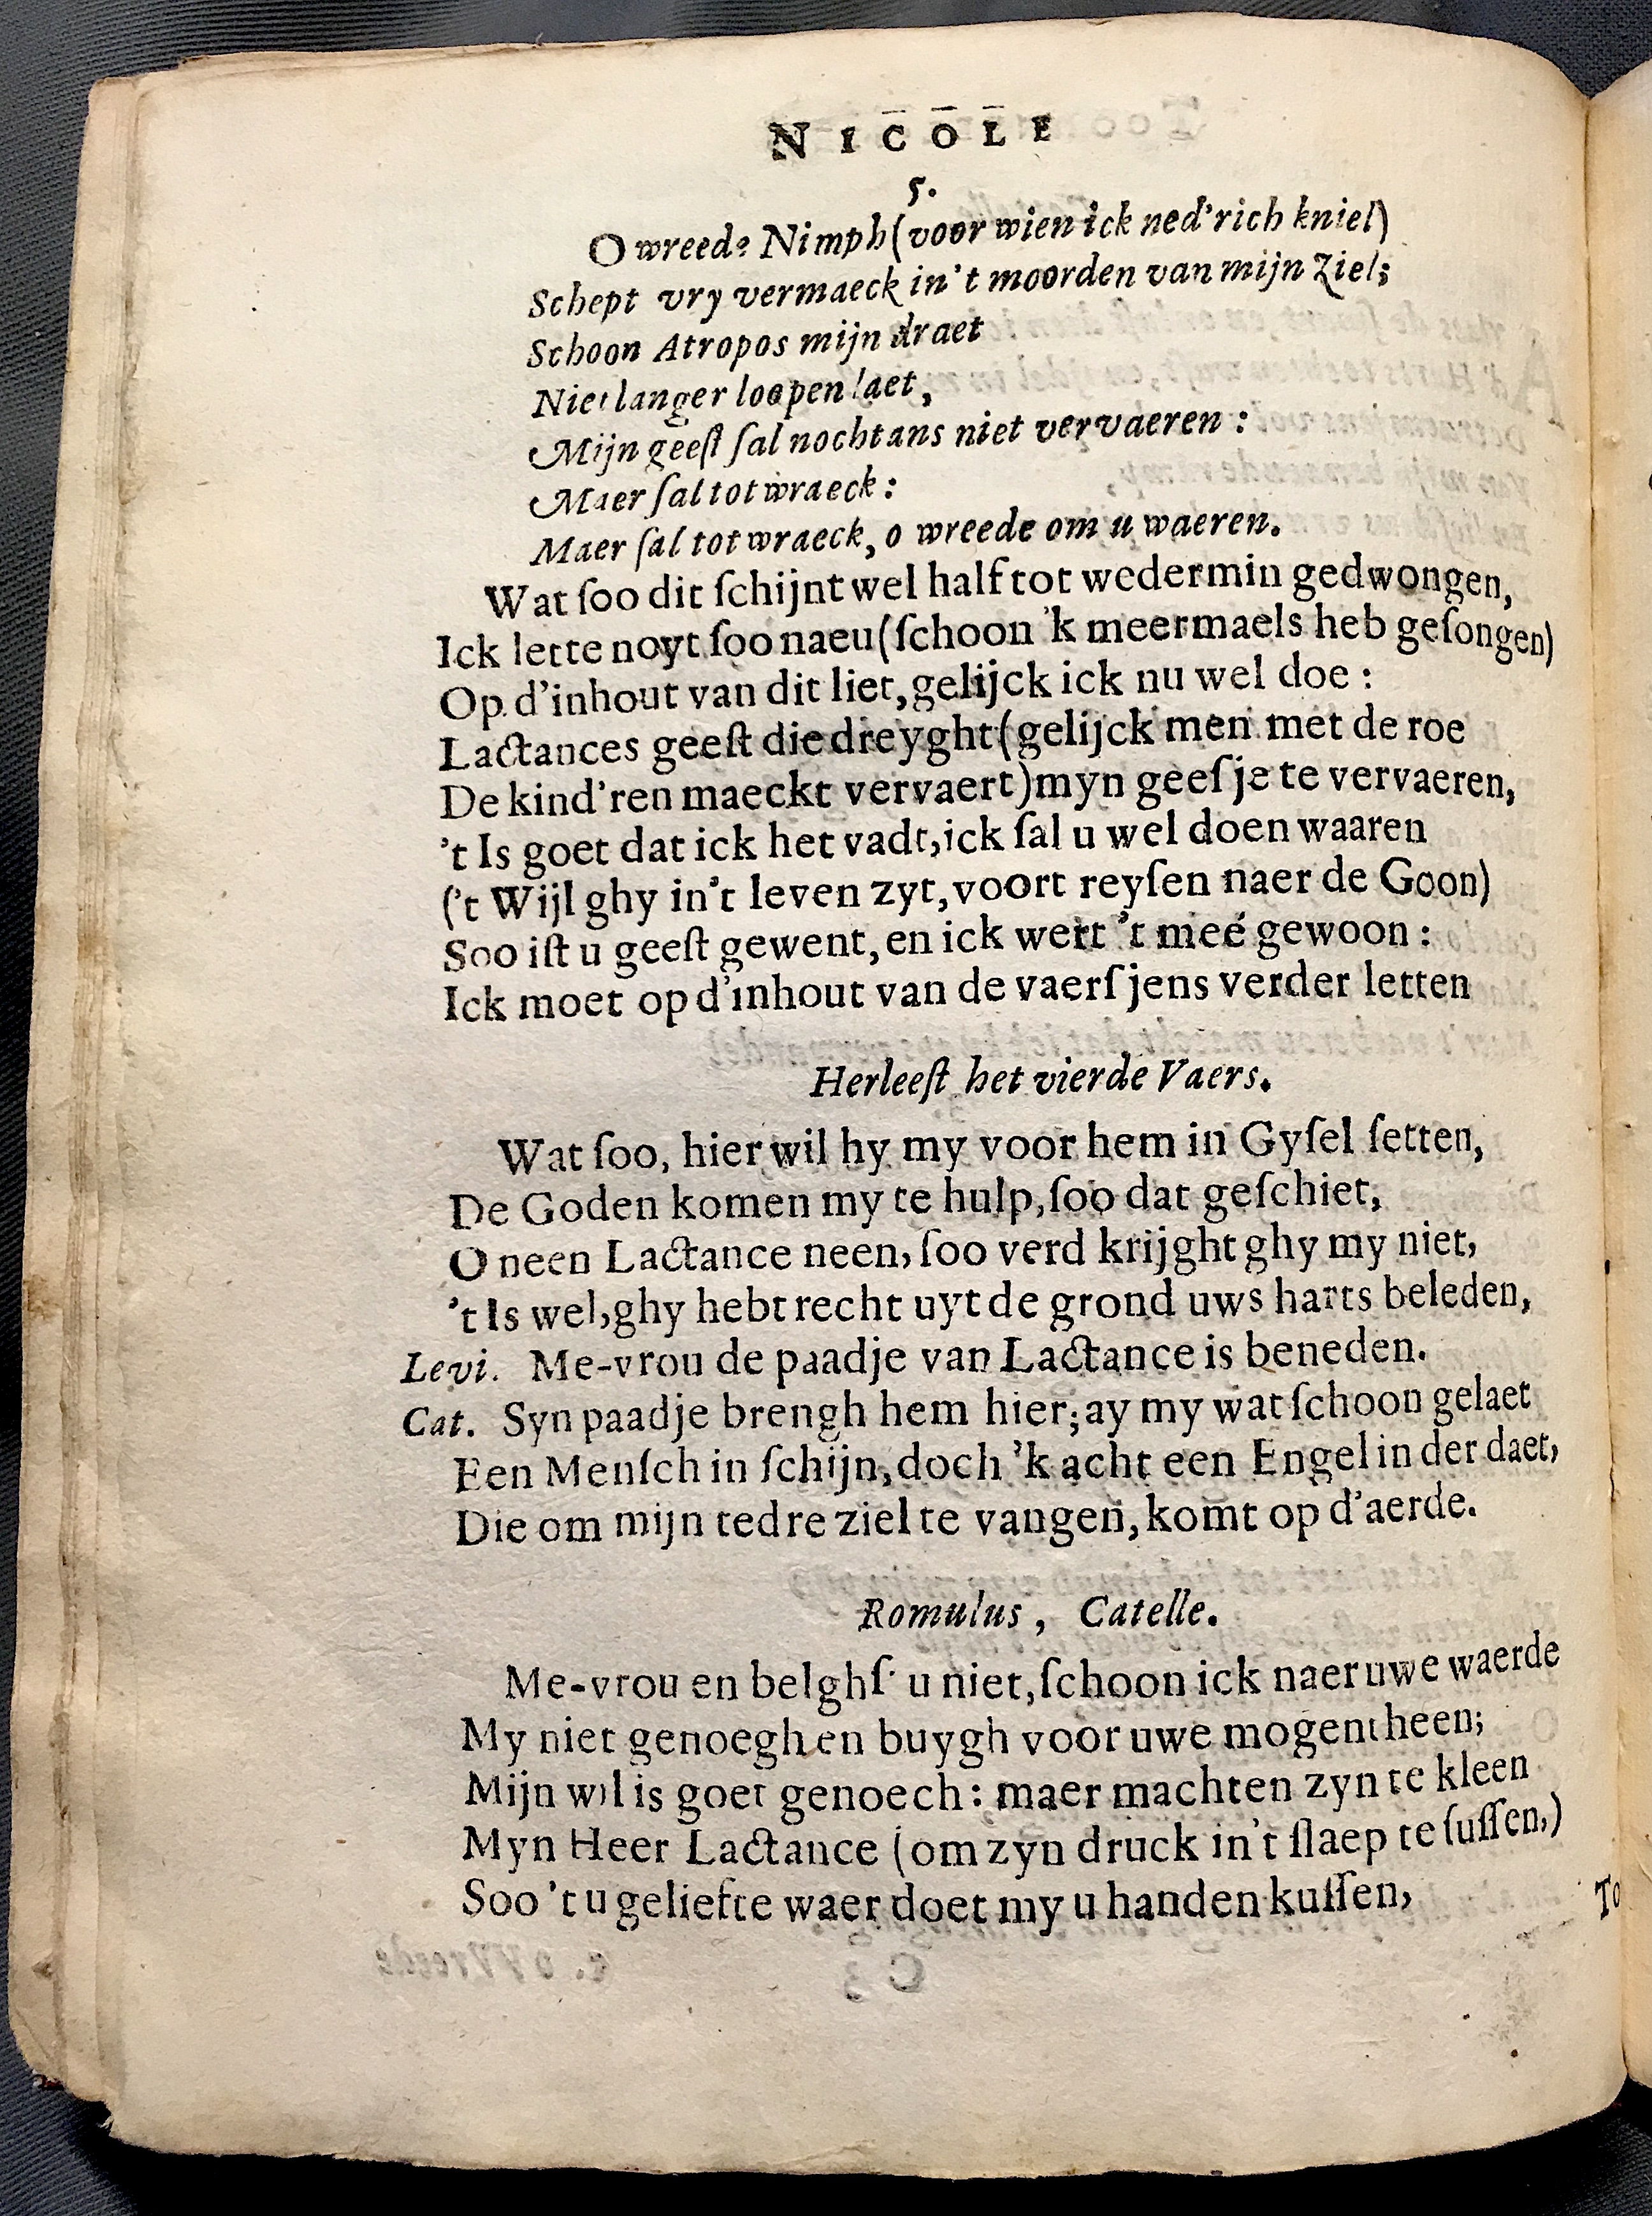 NICOLE
5.
O wreede Nimph (voor wien ick ned'rich kniel)
Schept vry vermaeck in't moorden van mijn Ziel;
Schoon Atropos mijn draet
Niet langer loopen laet,
Mijn geeſt ſal nochtans niet vervaeren:
Maer ſal tot wraeck:
Maer ſal tot wraeck, o wreede om u waeren.
Wat ſoo dit ſchijnt wel half tot wedermin gedwongen,
Ick lette noyt ſoo naeu (ſchoon 'k meermaels heb geſongen)
Op d'inhout van dit liet, gelijck ick nu wel doe:
Lactances geeſt die dreyght (gelijck men met de roe
De kind'ren maeckt vervaert) myn geeſje te vervaeren,
't Is goet dat ick het vadt, ick ſal u wel doen waaren
('t Wijl ghy in't leven zyt, voort reyſen naer de Goon)
Soo iſt u geeſt gewent, en ick wert 't meé gewoon:
Ick moet op d'inhout van de vaerſjens verder letten
Herleeſt het vierde Vaers.
Wat ſoo, hier wil hy my voor hem in Gyſel ſetten,
De Goden komen my te hulp, ſoo dat geſchiet,
O neen Lactance neen, ſoo verd krijght ghy my niet,
't Is wel, ghy hebt recht uyt de grond uws harts beleden,
Levi. Me-vrou de paadje van Lactance is beneden.
Cat. Syn paadje brengh hem hier; ay my wat ſchoon gelaet
Een Menſch in ſchijn, doch 'k acht een Engel in der daet,
Die om mijn tedre ziel te vangen, komt op d'aerde.
Romulus, Catelle.
Me-vrou en belghſ' u niet, ſchoon ick naer uwe waerde
My niet genoegh en buygh voor uwe mogentheen;
Mijn wil is goet genoech: maer machten zyn te kleen
Myn Heer Lactance (om zyn druck in't ſlaep te ſuſſen,)
Soo 't u geliefte waer doet my u handen kuſſen,
To